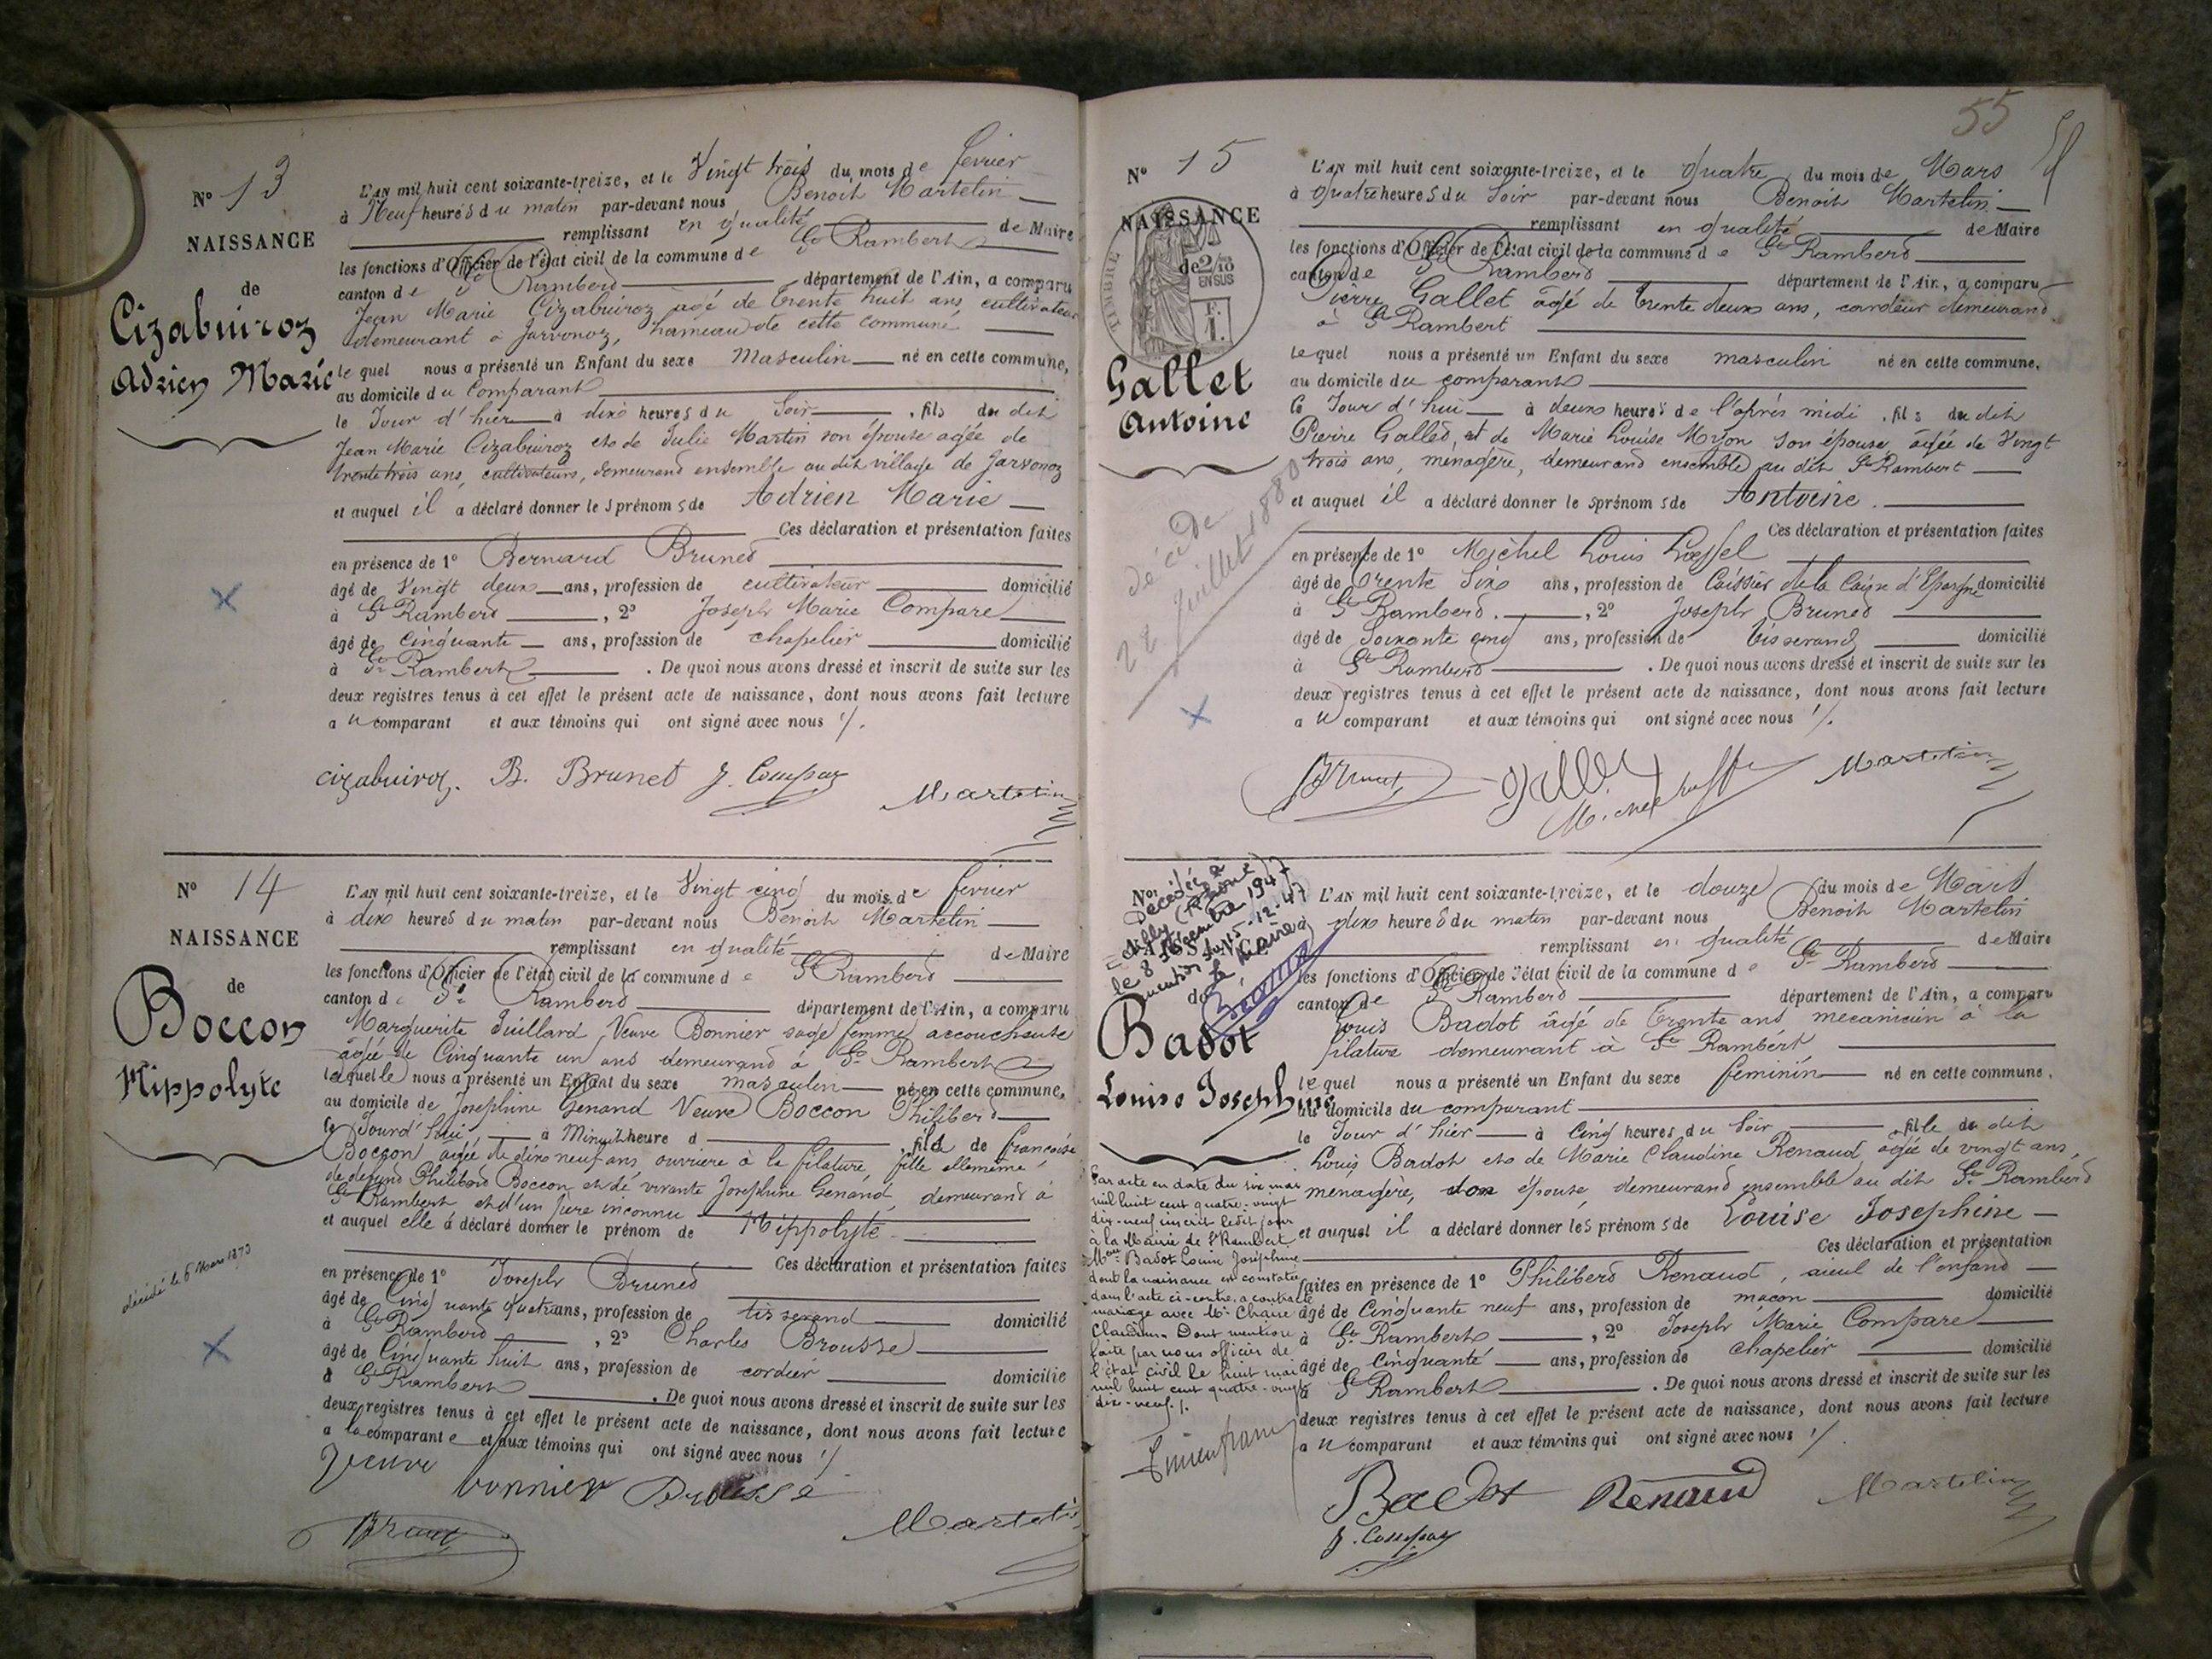 Nº 13
NAISSANCE
de
Cizabuiroz
Adrien Marie
L'AN mil huit cent soixante-treize, et le Vingt trois du mois de fevrier
à Neuf heures du matin par-devant nous Benoit Martelin
remplissant en qualité de Maire
les fonctions d'Officier de l'état civil de la commune de St Rambert
canton de St Rambert département de l'Ain, a comparu
Jean Marie Cizabuiroz agé de trente huit ans cultivateur
demeurant à Jarvonoz, hameau de cette commune
lequel nous a présenté un Enfant du sexe Masculin né en cette commune,
au domicile du Comparant
le Jour d'hier à dix heures du Soir, fils du dit
Jean Marie Cizabuiroz et de Julie Martin son épouse agée de
trente trois ans, cultivateurs, demeurant ensemble au dit village de Jarvonoz
et auquel il a déclaré donner les prénoms de Adrien Marie
Ces déclaration et présentation faites
en présence de 1º Bernard Brunet
âgé de Vingt deux ans, profession de cultivateur domicilié
à St Rambert, 2º Joseph Marie Compare
âgé de Cinquante ans, profession de chapelier domicilié
à St Rambert. De quoi nous avons dressé et inscrit de suite sur les
deux registres tenus à cet effet le présent acte de naissance, dont nous avons fait lecture
au comparant et aux témoins qui ont signé avec nous
cizabuiroz. B. Brunet J. Compare
Martelin
Nº 14
NAISSANCE
de
Boccon
Hippolyte
décédé le 6 Mars 1873
L'AN mil huit cent soixante-treize, et le Vingt cinq du mois de fevrier
à dix heures du matin par-devant nous Benoit Martelin
remplissant en qualité de Maire
les fonctions d'Officier de l'état civil de la commune de St Rambert
canton de St Rambert département de l'Ain, a comparu
Marguerite Juillard Veuve Bonnier sage femme accoucheuse
agée de Cinquante un ans demeurant à St Rambert
laquelle nous a présenté un Enfant du sexe masculin né en cette commune,
au domicile de Josephine Genand Veuve Boccon Philibert
le Jourd'hui à Minuit heure d fils de françoise
Boccon agée de dix neuf ans, ouvriere à la filature, fille ellemême
de défunt Philibert Boccon et de vivante Josephine Genand, demeurant à
St Rambert et d'un père inconnu
et auquel elle a déclaré donner le prénom de Hippolyte
Ces déclaration et présentation faites
en présence de 1º Joseph Brunet
âgé de Cinquante quatre ans, profession de tisserand domicilié
à St Rambert, 2º Charles Brousse
âgé de Cinquante huit ans, profession de cordier domicilié
à St Rambert. De quoi nous avons dressé et inscrit de suite sur les
deux registres tenus à cet effet le présent acte de naissance, dont nous avons fait lecture
a la comparante et aux témoins qui ont signé avec nous
Veuve bonnier Brousse
Brunet Martelin
55
Nº 15
NAISSANCE
TIMBRE
de 2/10 EN SUS
F. 1.
Gallet
Antoine
décédé
22 Juillet 1880
L'AN mil huit cent soixante-treize, et le quatre du mois de Mars
à quatre heures du Soir par-devant nous Benoit Martelin
remplissant en qualité de Maire
les fonctions d'Officier de l'état civil de la commune de St Rambert
canton de St Rambert département de l'Ain, a comparu
Pierre Gallet âgé de trente deux ans, cardeur demeurant
à St Rambert
lequel nous a présenté un Enfant du sexe masculin né en cette commune,
au domicile du comparant
le Jour d'hui à deux heures de l'après midi, fils du dit
Pierre Gallet, et de Marie Louise Myon son épouse, agée de Vingt
trois ans, ménagère, demeurant ensemble au dit St Rambert
et auquel il a déclaré donner les prénoms de Antoine.
Ces déclaration et présentation faites
en présence de 1º Michel Louis Lœffel
âgé de trente Six ans, profession de Caissier de la Caisse d'Epargne domicilié
à St Rambert, 2º Joseph Brunet
âgé de Soixante cinq ans, profession de tisserand domicilié
à St Rambert. De quoi nous avons dressé et inscrit de suite sur les
deux registres tenus à cet effet le présent acte de naissance, dont nous avons fait lecture
au comparant et aux témoins qui ont signé avec nous
Brunet Gallet Martelin
Nº
NAISSANCE
de
Décédée à
(Rhône)
le 8 Décembre 1947
mention du 15-12-47
Le Maire
Badot
Louise Josephine
Par acte en date du six mai
mil huit cent quatre-vingt
dix-neuf inscrit ledit jour
à la Mairie de St Rambert
Badot Louise Joséphine
dont la naissance est constatée
dans l'acte ci-contre, a contracté
mariage avec Mr Chaure
Claudius. Dont mention
faite par nous officier de
l'état civil le huit mai
mil huit cent quatre-vingt
dix-neuf.
L'AN mil huit cent soixante-treize, et le douze du mois de Mars
à dix heures du matin par-devant nous Benoit Martelin
remplissant en qualité de Maire
les fonctions d'Officier de l'état civil de la commune de St Rambert
canton de St Rambert département de l'Ain, a comparu
Louis Badot âgé de trente ans mecanicien à la
filature demeurant à St Rambert
lequel nous a présenté un Enfant du sexe féminin né en cette commune,
au domicile du comparant
le Jour d'hier à Cinq heures du Soir fille du dit
Louis Badot et de Marie Claudine Renaud agée de vingt ans,
menagère, son épouse, demeurant ensemble au dit St Rambert
et auquel il a déclaré donner les prénoms de Louise Josephine
Ces déclaration et présentation
faites en présence de 1º Philibert Renaud, aieul de l'enfant
âgé de Cinquante neuf ans, profession de maçon domicilié
à St Rambert, 2º Joseph Marie Compare
âgé de Cinquante ans, profession de chapelier domicilié
à St Rambert. De quoi nous avons dressé et inscrit de suite sur les
deux registres tenus à cet effet le présent acte de naissance, dont nous avons fait lecture
au comparant et aux témoins qui ont signé avec nous
Badot Renaud Martelin
J. Compare